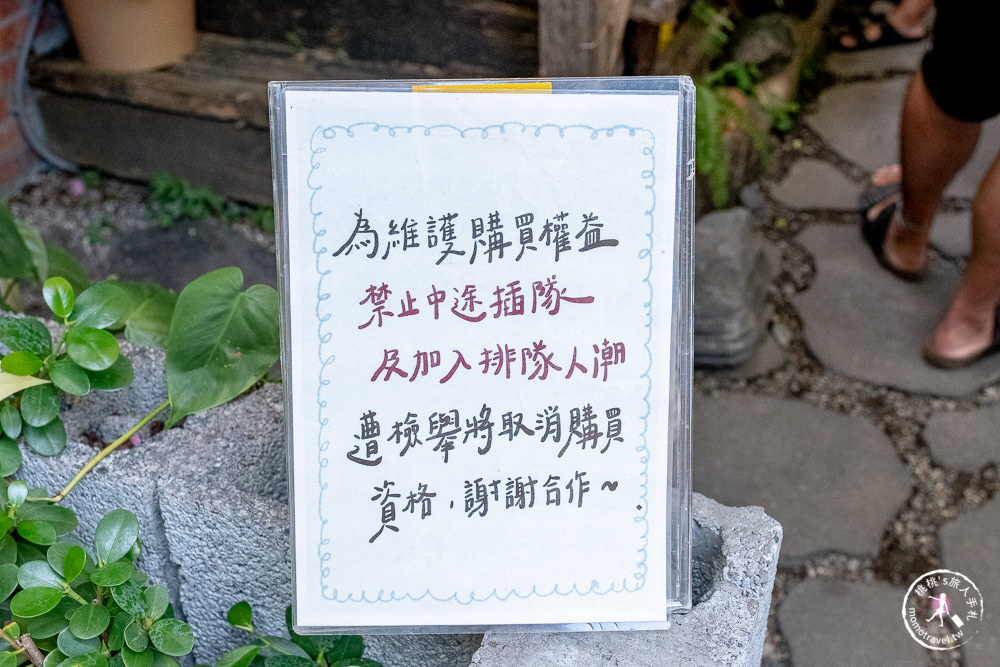 為維護購買權益
禁止中途插隊
及加入排隊人潮
遭檢舉將取消購買
資格，謝謝合作~
桃桃's旅人手札
momotravel.tw